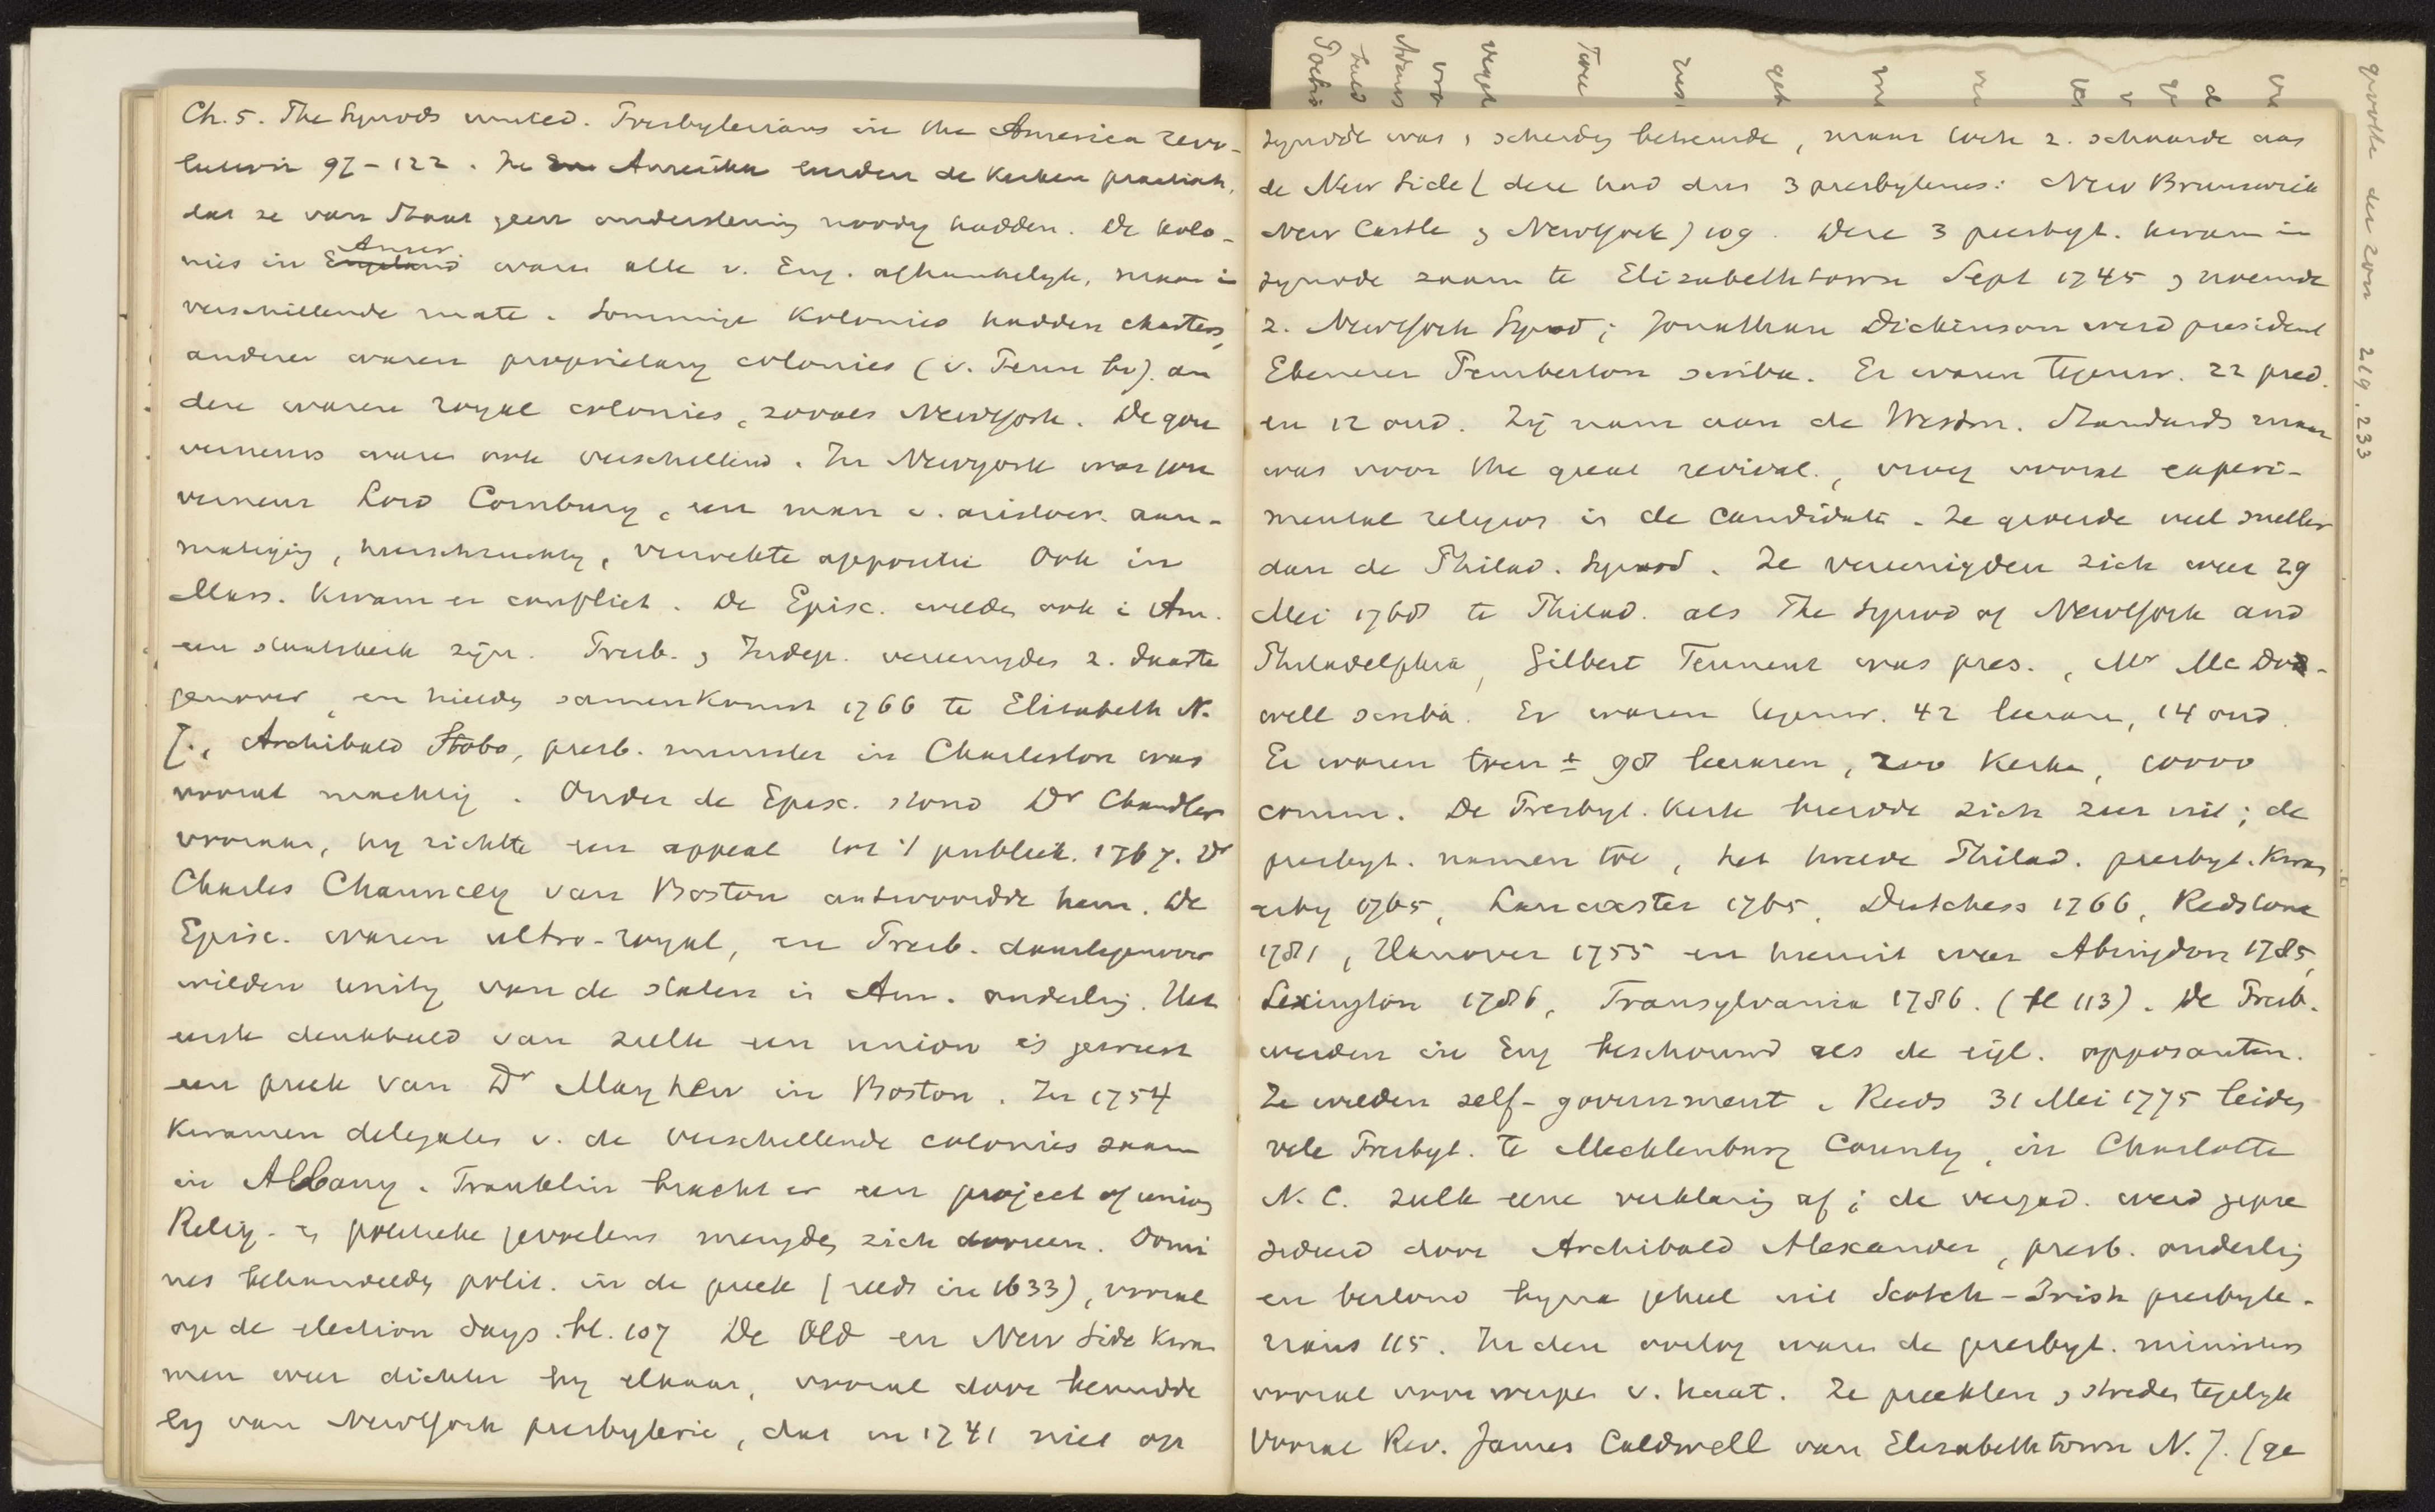 Ch. 5. The Synods united. Presbyterians in the America revo-
lution 97-122. In Amerika leerden de Kerken practisch,
dat ze van Staat geen ondersteuning noodig hadden. De kolo-
nies in Amer. waren alle v. Eng. afhankelijk, maar in
verschillende mate. Sommige Kolonies hadden charters,
anderen waren proprietary colonies (v. Penn bv). an
dere waren royal colonies, zooals NewYork. De gou
verneurs waren ook verschillend. In Newyork was gou
verneur Lord Cornbury, een man v. aristocr. aan-
matiging, heerschzuchtig, verwekte oppositie. Ook in
Mass. kwam er conflict. De Episc. wilden ook in Am.
een staatskerk zijn. Presb. en Indep. vereenigden z. daarte
genover, en hielden samenkomst 1766 te Elisabeth N.
J., Archibald Stobo, presb. minister in Charleston was
vooral machtig. Onder de Episc. stond Dr Chandler
vooraan, hij richtte een appeal tot 't publiek. 1767. Dr
Charles Chauncey van Boston antwoordde hem. De
Episc. waren ultra-royal, de Presb. daartegenover
wilden unity van de staten in Am. onderling. Het
eerste denkbeeld van zulk een union is geweest
een preek van Dr Mayhew in Boston. In 1754
Kwamen delegates v. de verschillende colonies saam
in Albany. Franklin bracht er een project of union
Relig. en politieke gevoelens mengden zich dooreen. Domi
nes behandelden polit. in de preek (reeds in 1633), vooral
op de election days. bl. 107 De Old en New Side kwa
men weer dichter bij elkaar, vooral door bemidde
ling van NewYork presbyterie, dat in 1741 niet op
synode was, scheiding betreurde, maar toch z. schaarde aan
de New Side (deze had dus 3 presbyteries: New Brunswick
New Castle en NewYork) 109. Deze 3 presbyt. kwam in
synode saam te Elizabethtown Sept 1745 en noemde
z. NewYork Synod; Jonathan Dickinson werd president
Ebenezer Pemberton scriba. Er waren tegenw. 22 pred.
en 12 oud. Zij nam aan de Westm. Standards maar
was voor the great revival, vroeg vooral experi-
mental religion in de candidaten. Ze groeide veel sneller
dan de Philad. Synod. Ze vereenigden zich weer 29
Mei 1768 te Philad. als The Synod of NewYork and
Philadelphia, Gilbert Tennent was pres., Mr Mc Do-
well scriba. Er waren tegenw. 42 leeraren, 14 oud.
Er waren toen ± 98 leeraren, 200 Kerken, 10000
comm. De Presbyt. Kerk breidde zich zeer uit; de
presbyt. namen toe, het tweede Philad. presbyt. kwam
erbij 1765, Lancaster 1765, Dutchess 1766, Redstone
1781, Hanover 1755 en hieruit weer Abingdon 1785,
Lexington 1786, Transylvania 1786. (bl 113). De Presb.
werden in Eng beschouwd als de eigl. opposanten.
Ze wilden self-government. Reeds 31 Mei 1775 leiden
vele Presbyt. te Mecklenburg County, in Charlotte
N.C. zulk eene verklaring af; de vergad. werd gepre
sideerd door Archibald Alexander, presb. ouderling
en bestond bijna geheel uit Scotch-Irish presbyte-
rians 115. In den oorlog waren de presbyt. ministers
vooral voorwerpen v. haat. Ze preekten en streden tegelijk
Vooral Rev. James Caldwell van Elisabethtown N.J. (ge
grootte der zon 219, 233